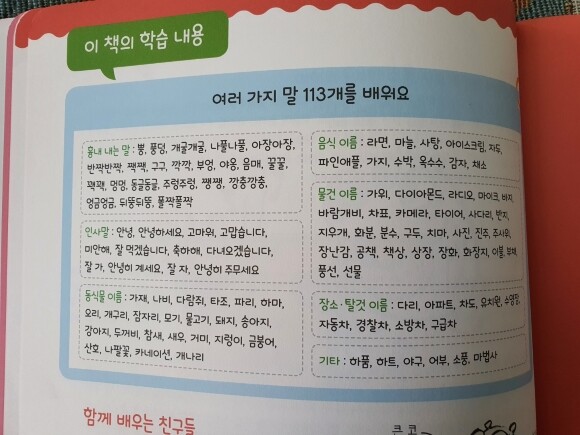 이 책의 학습 내용
여러 가지 말 113개를 배워요
흉내 내는 말 : 뿡, 퐁덩, 개굴개굴, 나풀나풀, 아장아장,
반짝반짝, 짹짹, 구구, 깍깍, 부엉, 야옹, 음매, 꿀꿀,
꽥꽥, 멍멍, 동글동글, 주렁주렁, 쌩쌩, 깡충깡충,
엉금엉금, 뒤뚱뒤뚱, 폴짝폴짝
인사말 : 안녕, 안녕하세요, 고마워, 고맙습니다,
미안해, 잘 먹겠습니다, 축하해, 다녀오겠습니다,
잘 가, 안녕히 계세요, 잘 자, 안녕히 주무세요
동식물 이름 : 가재, 나비, 다람쥐, 타조, 파리, 하마,
오리, 개구리, 잠자리, 모기, 물고기, 돼지, 송아지,
강아지, 두꺼비, 참새, 새우, 거미, 지렁이, 금붕어,
산호, 나팔꽃, 카네이션, 개나리
음식 이름 : 라면, 마늘, 사탕, 아이스크림, 자두,
파인애플, 가지, 수박, 옥수수, 감자, 채소
물건 이름 : 가위, 다이아몬드, 라디오, 마이크, 바지,
바람개비, 차표, 카메라, 타이어, 사다리, 반지,
지우개, 화분, 분수, 구두, 치마, 사진, 진주, 주사위,
장난감, 공책, 책상, 상장, 장화, 화장지, 이불, 부채,
풍선, 선물
장소·탈것 이름 : 다리, 아파트, 차도, 유치원, 수영장,
자동차, 경찰차, 소방차, 구급차
기타 : 하품, 하트, 야구, 어부, 소풍, 마법사
함께 배우는 친구들
큰 코